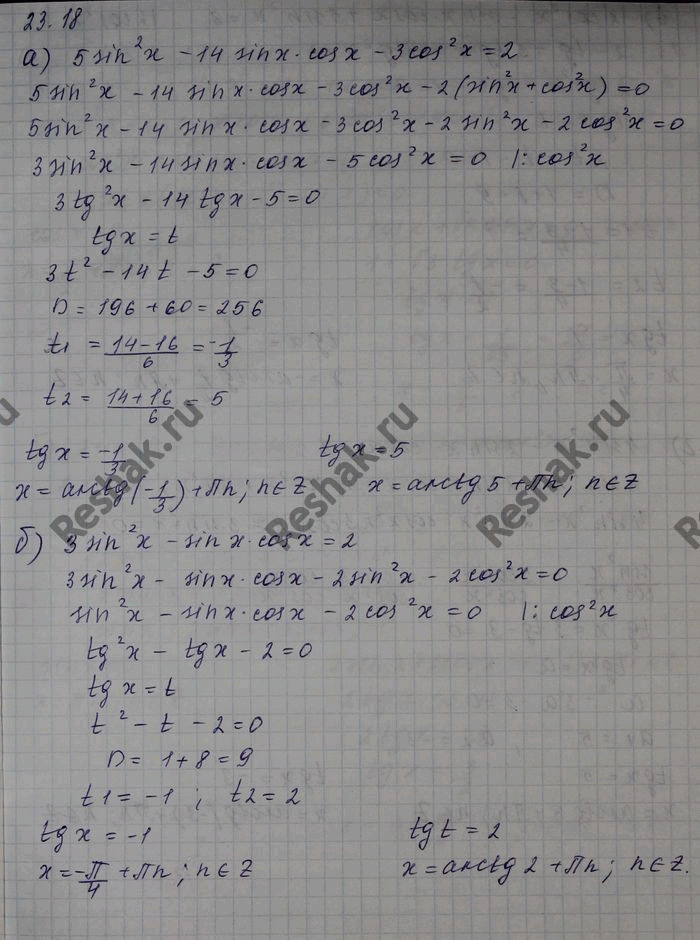 23.18
а) 5 sin²x - 14 sinx · cosx - 3cos²x = 2
5 sin²x - 14 sinx · cosx - 3cos²x - 2(sin²x + cos²x) = 0
5sin²x - 14 sinx · cosx - 3cos²x - 2 sin²x - 2cos²x = 0
3 sin²x - 14 sinx · cosx - 5 cos²x = 0 |: cos²x
3 tg²x - 14 tgx - 5 = 0
tgx = t
3t² - 14t - 5 = 0
D = 196 + 60 = 256
t1 = (14-16)/6 = -1/3
t2 = (14+16)/6 = 5
tgx = -1/3 tgx = 5
x = arctg(-1/3) + πn; n∈Z x = arctg 5 + πn; n∈Z
б) 3 sin²x - sinx · cosx = 2
3sin²x - sinx · cosx - 2sin²x - 2cos²x = 0
sin²x - sinx · cosx - 2cos²x = 0 |: cos²x
tg²x - tgx - 2 = 0
tgx = t
t² - t - 2 = 0
D = 1 + 8 = 9
t1 = -1 ; t2 = 2
tgx = -1 tgt = 2
x = -π/4 + πn; n∈Z x = arctg 2 + πn; n∈Z.
Reshak.ru
Reshak.ru
Reshak.ru